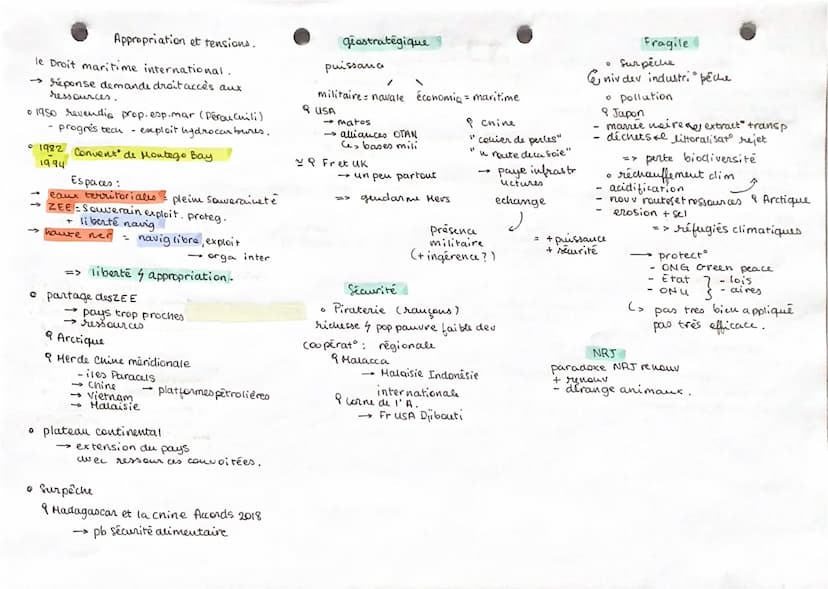 Appropriation et tensions.
le Droit maritime international.
→ réponse demande droit accès aux
ressources.
o 1950 revendiq prop. esp. mar (Pérou Chili)
- progrès tech - exploit hydrocarbures.
o 1982
-
1994
Convent° de Montego Bay
Espaces :
→ eaux territoriales = plein souveraineté
→ ZEE = Souverain exploit. proteg.
+ liberté navig
→ haute mer = navig libre, exploit
→ orga inter
=> liberté ϟ appropriation.
o partage des ZEE
→ pays trop proches
→ ressources
Arctique
Mer de Chine méridionale
- îles Paracels
→ Chine
→ Vietnam
→ Malaisie
→ platformes pétrolières
o plateau continental
→ extension du pays
avec ressources convoitées.
o Surpêche
Madagascar et la Chine Accords 2018
→ pb sécurité alimentaire
géostratégique
puissance
militaire = navale économiq = maritime
USA
→ matos
→ alliances OTAN
↳ bases mili
Fr et UK
→ un peu partout
=> gendarme Mers
Chine
"collier de perles"
"n route de la soie"
→ paye infrastr
uctures
echange
présence
militaire
(+ ingérence ?)
= + puissance
+ sécurité
Sécurité
o Piraterie (rançons)
richesse ϟ pop pauvre faible dev
coopérat° : régionale
Malacca
→ Malaisie Indonésie
internationale
corne de l'A.
→ Fr USA Djibouti
Fragile
o Surpêche
niv dev industri° pêche
o pollution
Japon
- marrée noire extract° transp
- déchets littoralisat° rejet
=> perte biodiversité
o réchauffement clim
- acidification
- nouv routes et ressources Arctique
- erosion + sel
=> réfugiés climatiques
→ protect°
- ONG Green peace
- Etat
- ONU
- lois
- aires
↳ pas tres bien appliqué
pas très efficace.
NRJ
paradoxe NRJ renouv
+ renouv
- dérange animaux.